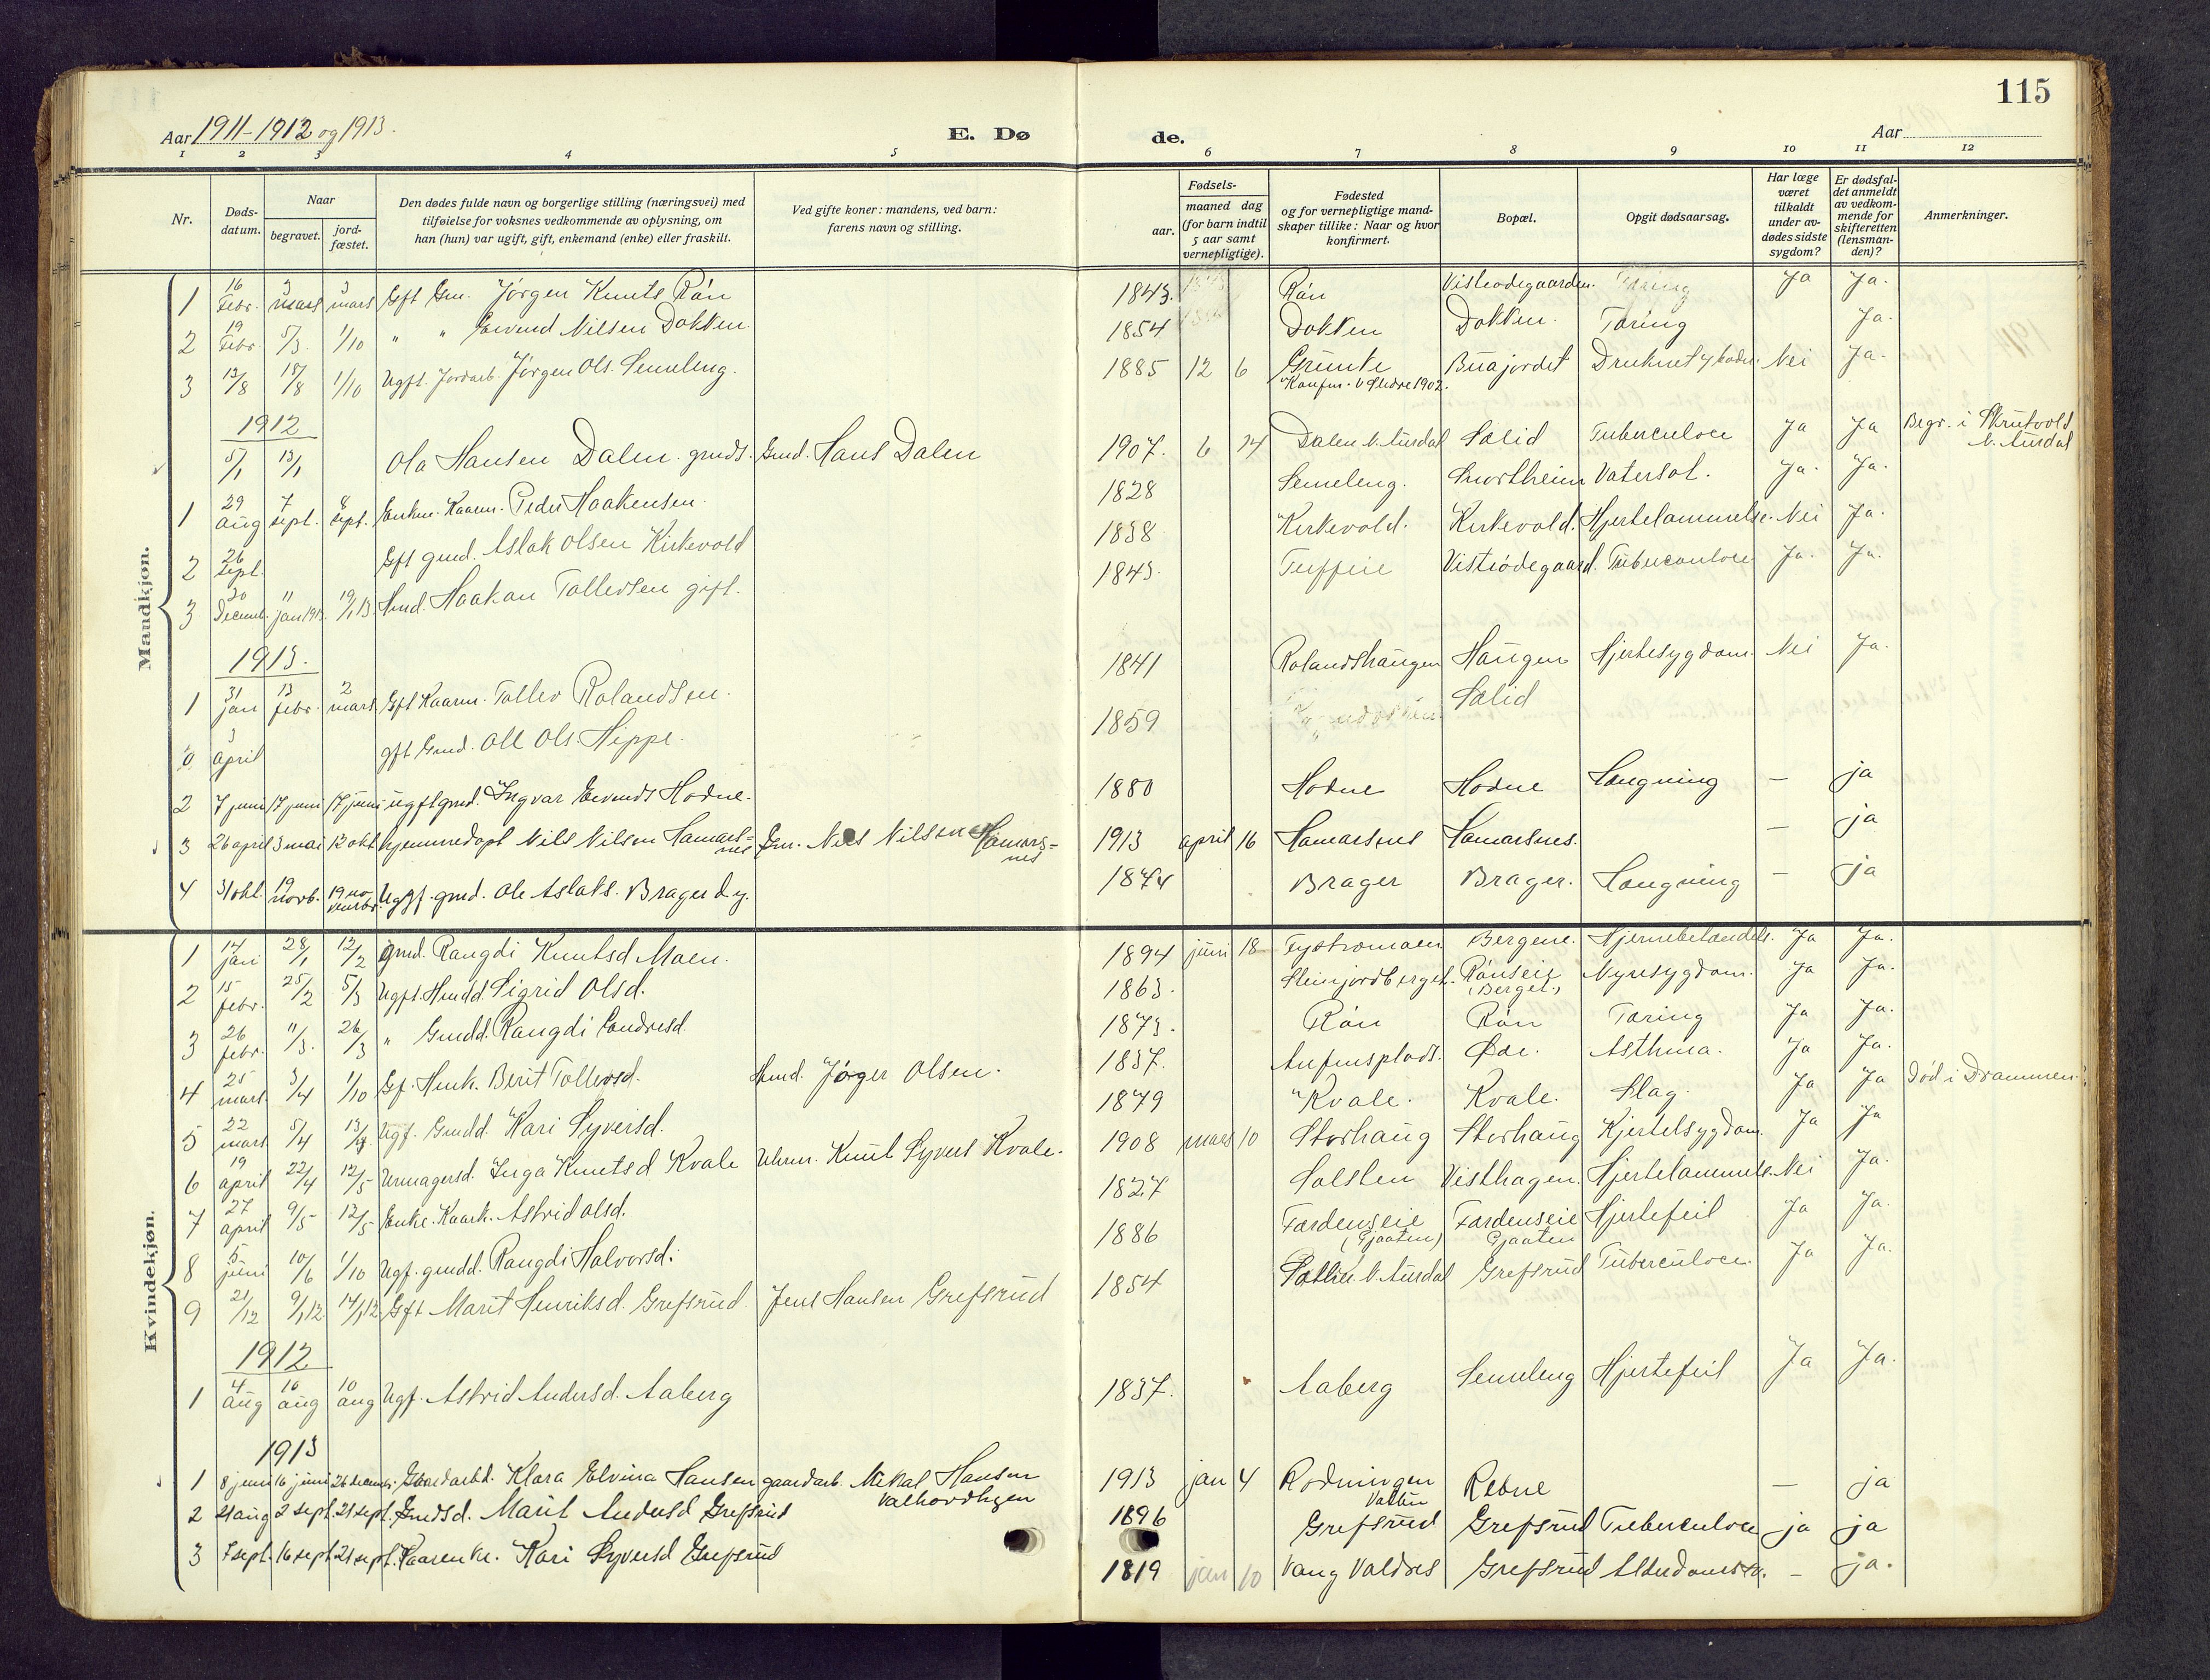 115
Aar 1911-1912 og 1913.
E. Dø de.
Aar
1 2 3 4 5 6 7 8 9 10 11 12
Nr.
Døds-
datum.
Naar
begravet.
jord-
fæstet.
Den dødes fulde navn og borgerlige stilling (næringsvei) med
tilføielse for voksnes vedkommende av oplysning, om
han (hun) var ugift, gift, enkemand (enke) eller fraskilt.
Ved gifte koner: mandens, ved barn:
farens navn og stilling.
Fødsels-
aar.
maaned dag
(for barn indtil
5 aar samt
vernepligtige).
Fødested
og for vernepligtige mand-
skaper tillike: Naar og hvor
konfirmert.
Bopæl.
Opgit dødsaarsag.
Har læge
været
tilkaldt
under av-
dødes sidste
sygdom?
Er dødsfal-
det anmeldt
av vedkom-
mende for
skifteretten
(lensman-
den)?
Anmerkninger.
Mandkjøn.
1 16 Febr. 3 mars 3 mars Gft Gm. Jørgen Knuts Røn 1843. Røn Tæring Ja Ja.
2 19 Febr. 5/3. 1/10 " " Eivend Nilsen Dokken 1854 Dokken Dokken. Tæring Ja.
3 13/8 18/8 1/10 Ugft. Jordarb. Jørgen Ols. Semeleng. 1885 12 6 Grunte Buajordet Druknet Nei Ja.
Konfm. V Slidre 1902.
1912
5/1 13/1 Ola Hansen Dalen grmds. Gmd. Hans Dalen 1907. 6 24 Dalen N. Aurdal Sælid Tuberculose Ja Ja Begr. i Skrutvold
N. Aurdal
1 29 aug 7 sept. sept. Enkm. Kaarm. Peder Haakensen. 1828 Semeleng. Smortheim Vatersot. Ja. Ja.
2 26 sept. Gft gmd. Aslak Olsen Kirkevold 1838 Kirkevold. Kirkevold. Hjertelammelse. Nei Ja.
3 30 Decemb. 11 jan 1913. 19/1 13 Hmd. Haakon Tollevsen gift. 1843. Ja. Ja.
1913.
1 31 jan 13 febr. 2 mars Gft Kaarm. Tollev Rolandsen. 1841 Rolandshaugen Haugen Hjertesygdom. Nei Ja.
0 3 april gft Gmd. Ole Ols. Hippe. 1859 Sælid
2 7 juni 17 juni 17 juni ugft gmd. Ingvar Eivends Hodne. 1880 Hodne Hodne Lougning — ja
3 26 april 3 mai 12 okt hjemmedøpt Nils Nilsen Hamars=
nes Gm. Nils Nilsen Hamars=
nes 1913 april 16 Hamarsnes Hamarsnes. — ja
4 31 okt. 19 novb. 19 no
vembr. Uggf. gmd. Ole Aslaks. Brager d.y. 1844 Brager Brager. Lougning — ja
Kvindekjøn.
1 14 jan 28/1 12/2 gmd. Rangdi Knutsd. Moen. 1894 juni 18 Bergene. Ja Ja.
2 15 febr. 25/2 5/3 Ugft. Hmdd. Sigrid Olsd. 1863. Steinjordberget. Rønseie Nyresygdom. Ja Ja.
(Berget)
3 26 febr. 11/3. 26/3 " Gmdd. Rangdi Endresd. 1873. Røn Røn Tæring Ja Ja.
4 25 mars 3/4 1/10 Gf. Hmk. Berit Tollevsd. Hmd. Jørger Olsen. 1837. Øde. Asthma. Ja Ja.
5 22 mars 5/4 Ugf. Gmdd. Kari Syversd. 1879 Kvale. Kvale. Slag. Ja Ja Død i Drammen.
6 19 april 22/4 12/5 Urmagersd. Inga Knutsd Kvale Uhrm. Knut Syvers Kvale. 1908 mars 10 Storhaug Storhaug Kjertelsygdom. Ja Ja
7 27 april 9/5 12/5 Enke. Kaark. Astrid Olsd. 1827 Holsten Visthagen. Hjertelammelse. Nei Ja.
8 5 juni 10/6 1/10 Ugf. gmdd. Rangdi Halvorsd. 1886 Fardenseie Fardenseie Hjertefeil Ja Ja.
(Gjaaten) Gjaaten
9 21/12 9/1 12. 14/1 12. Gft Marit Henriksd. Grefsrud. Jens Hansen Grefsrud 1854 N. Aurdal Grefsrud Tuberculose Ja Ja.
1912
1 4 aug 10 aug 10 aug Ugf. Astrid Andersd. Aaberg 1837. Aaberg Semeleng Hjertefeil Ja Ja.
1913
1 8 juni 16 juni 26 decemb. Gaardarbd. Klara Elvina Hansen gaardarb. Mikal Hansen 1913 jan 4 Rodningen Rebne — ja
2 21 aug 2 sept. 21 sept. Gmdsd. Marit Andersd Grefsrud 1896 Grefsrud Grefsrud Tuberculose ja ja
3 7 sept. 16 sept 21 sept. Kaarenke. Kari Syversd Grefsrud 1819 jan 10 Vang Valdres Grefsrud Alderdomssv. — ja.